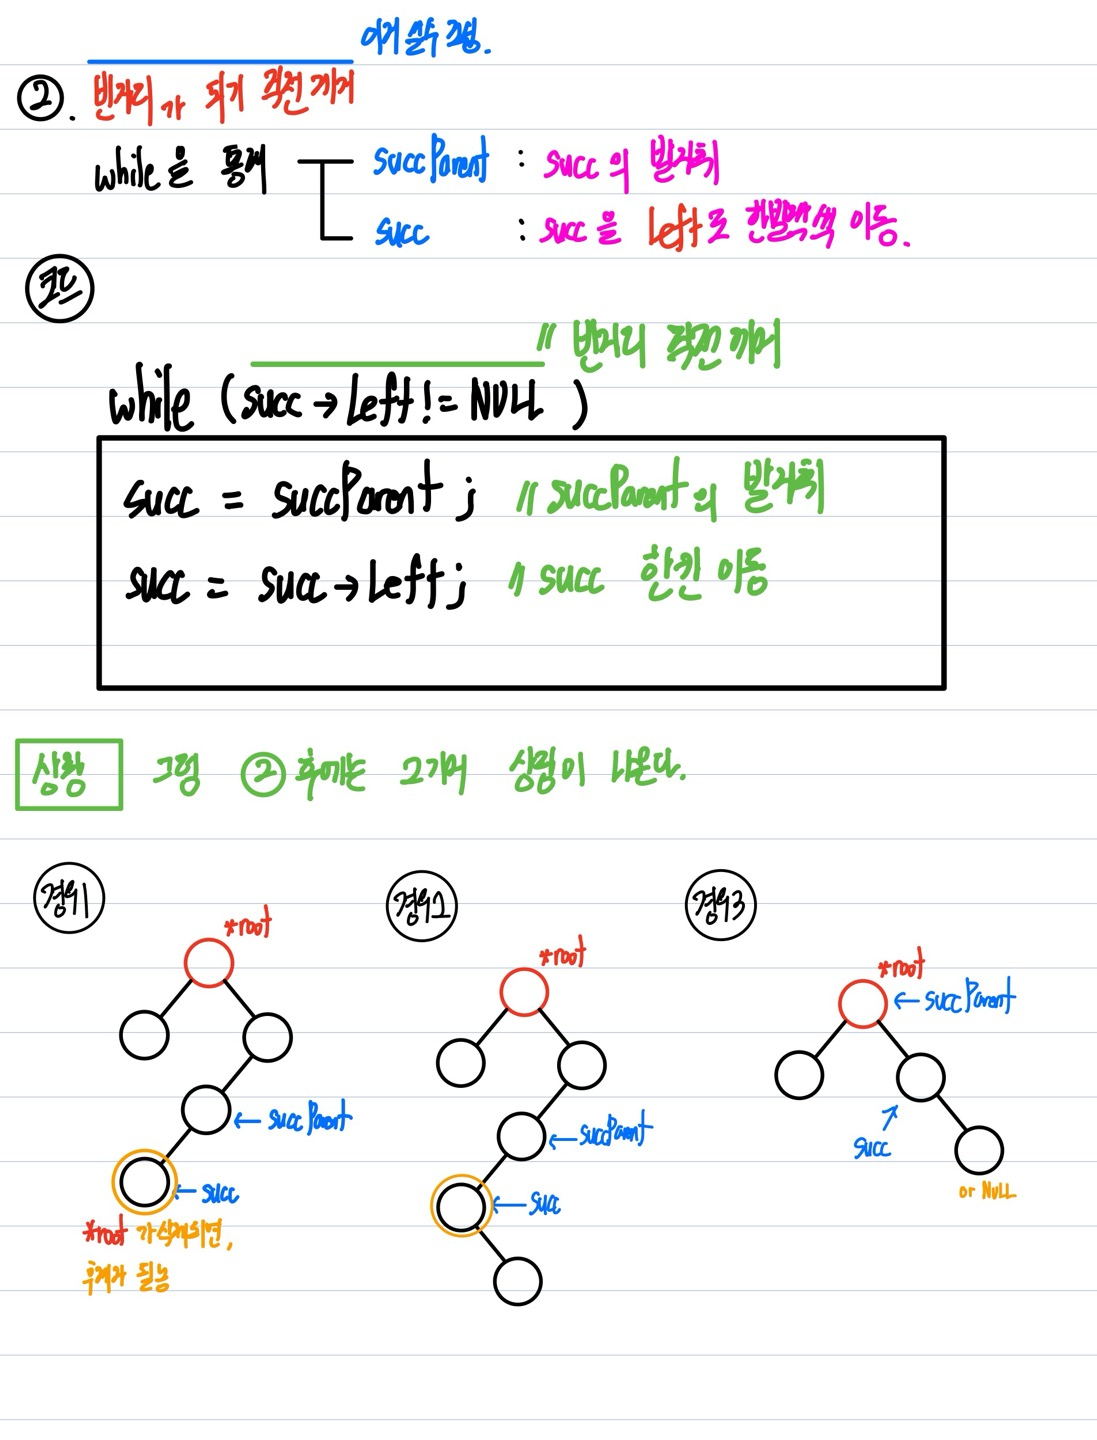 이거 실수 조심.
②. 빈자리가 되기 직전까지
while을 통해 succParent : succ의 발자취
succ : succ을 left로 한발짝씩 이동.
코드
// 빈자리 직전까지
while (succ→left != NULL )
succ = succParent ; // succParent의 발자취
succ = succ→left; // succ 한칸 이동
상황 그럼 ② 후에는 2가지 상황이 나온다.
경우1 경우2 경우3
*root *root *root
←succParent
←succParent ←succParent
succ
←succ ←succ
or NULL
*root 가 삭제되면,
후계자 될 놈